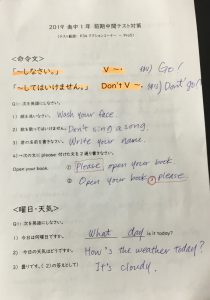 2019 1年 前期中間テスト対策
<命令文>
「~しなさい。」 V ~. 例) Go!
「~してはいけません。」 Don't V ~. 例) Don't go!
Q1: 次を英語にしなさい。
1) 顔を洗いなさい。 Wash your face.
2) 歌を歌ってはいけません。 Don't sing a song.
3) 名前を書きなさい。 Write your name.
Open your book. ① Please, open your book
② Open your book, please.
<曜日・天気>
Q1: 次を英語にしなさい。
1) 今日は何曜日ですか。 What day is it today?
2) 今日の天気はどうですか。 How's the weather today?
3) 曇りです。(2)の答えとして) It's cloudy.